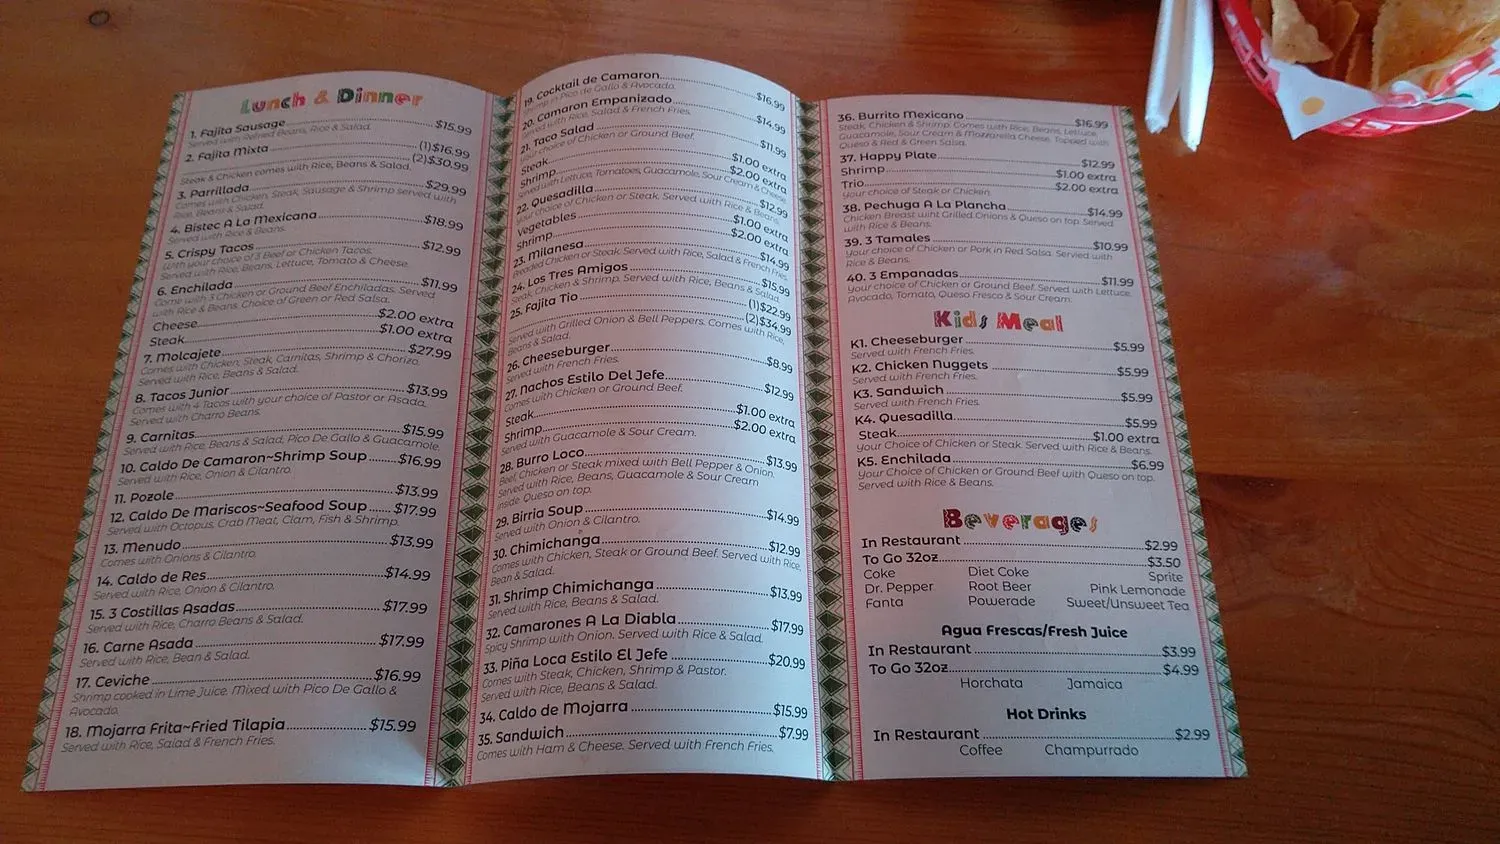 Lunch & Dinner
1. Fajita Sausage $15.99
Served with Refried Beans, Rice & Salad.
2. Fajita Mixta (1)$16.99
(2)$30.99
Steak & Chicken comes with Rice, Beans & Salad.
3. Parrillada $29.99
Comes with Chicken, Steak, Sausage & Shrimp served with
Rice, Beans & Salad.
4. Bistec A La Mexicana $18.99
Served with Rice & Beans.
5. Crispy Tacos $12.99
With your choice of 3 Beef or Chicken Tacos.
Served with Rice, Beans, Lettuce, Tomato & Cheese.
6. Enchilada $11.99
Come with 3 Chicken or Ground Beef Enchiladas. Served
with Rice & Beans. Choice of Green or Red Salsa.
Cheese $2.00 extra
Steak $1.00 extra
7. Molcajete $27.99
Comes with Chicken, Steak, Carnitas, Shrimp & Chorizo.
Served with Rice, Beans & Salad.
8. Tacos Junior $13.99
Comes with 4 Tacos with your choice of Pastor or Asada.
Served with Charro Beans.
9. Carnitas $15.99
Served with Rice, Beans & Salad, Pico De Gallo & Guacamole.
10. Caldo De Camaron~Shrimp Soup $16.99
Served with Rice, Onion & Cilantro.
11. Pozole $13.99
12. Caldo De Mariscos~Seafood Soup $17.99
Served with Octopus, Crab Meat, Clam, Fish & Shrimp.
13. Menudo $13.99
Comes with Onions & Cilantro.
14. Caldo de Res $14.99
Served with Rice, Onion & Cilantro.
15. 3 Costillas Asadas $17.99
Served with Rice, Charro Beans & Salad.
16. Carne Asada $17.99
Served with Rice, Bean & Salad.
17. Ceviche $16.99
Shrimp cooked in Lime Juice. Mixed with Pico De Gallo &
Avocado.
18. Mojarra Frita~Fried Tilapia $15.99
Served with Rice, Salad & French Fries.
19. Cocktail de Camaron $16.99
Shrimp in Pico de Gallo & Avocado.
20. Camaron Empanizado $14.99
Served with Rice, Salad & French Fries.
21. Taco Salad $11.99
Your choice of Chicken or Ground Beef.
Steak $1.00 extra
Shrimp $2.00 extra
Served with Lettuce, Tomatoes, Guacamole, Sour Cream & Cheese.
22. Quesadilla $12.99
Your choice of Chicken or Steak. Served with Rice & Beans.
Vegetables $1.00 extra
Shrimp $2.00 extra
23. Milanesa $14.99
Breaded Chicken or Steak. Served with Rice, Salad & French Fries.
24. Los Tres Amigos $15.99
Steak, Chicken & Shrimp. Served with Rice, Beans & Salad.
25. Fajita Tio (1)$22.99
(2)$34.99
Served with Grilled Onion & Bell Peppers. Comes with Rice,
Beans & Salad.
26. Cheeseburger $8.99
Served with French Fries.
27. Nachos Estilo Del Jefe $12.99
Comes with Chicken or Ground Beef.
Steak $1.00 extra
Shrimp $2.00 extra
Served with Guacamole & Sour Cream.
28. Burro Loco $13.99
Beef, Chicken or Steak mixed with Bell Pepper & Onion.
Served with Rice, Beans, Guacamole & Sour Cream
inside. Queso on top.
29. Birria Soup $14.99
Served with Onion & Cilantro.
30. Chimichanga $12.99
Comes with Chicken, Steak or Ground Beef. Served with Rice,
Bean & Salad.
31. Shrimp Chimichanga $13.99
Served with Rice, Beans & Salad.
32. Camarones A La Diabla $17.99
Spicy Shrimp with Onion. Served with Rice & Salad.
33. Piña Loca Estilo El Jefe $20.99
Comes with Steak, Chicken, Shrimp & Pastor.
Served with Rice, Beans & Salad.
34. Caldo de Mojarra $15.99
35. Sandwich $7.99
Comes with Ham & Cheese. Served with French Fries.
36. Burrito Mexicano $16.99
Steak, Chicken & Shrimp Comes with Rice, Beans, Lettuce,
Guacamole, Sour Cream & Mozzarella Cheese. Topped with
Queso & Red & Green Salsa.
37. Happy Plate $12.99
Shrimp $1.00 extra
Trio $2.00 extra
Your choice of Steak or Chicken.
38. Pechuga A La Plancha $14.99
Chicken Breast wiht Grilled Onions & Queso on top. Served
with Rice & Beans.
39. 3 Tamales $10.99
Your choice of Chicken or Pork in Red Salsa. Served with
Rice & Beans.
40. 3 Empanadas $11.99
Your choice of Chicken or Ground Beef. Served with Lettuce,
Avocado, Tomato, Queso Fresco & Sour Cream.
Kids Meal
K1. Cheeseburger $5.99
Served with French Fries.
K2. Chicken Nuggets $5.99
Served with French Fries.
K3. Sandwich $5.99
Served with French Fries.
K4. Quesadilla $5.99
Steak $1.00 extra
Your Choice of Chicken or Steak. Served with Rice & Beans.
K5. Enchilada $6.99
Your Choice of Chicken or Ground Beef with Queso on top.
Served with Rice & Beans.
Beverages
In Restaurant $2.99
To Go 32oz $3.50
Coke Diet Coke Sprite
Dr. Pepper Root Beer Pink Lemonade
Fanta Powerade Sweet/Unsweet Tea
Agua Frescas/Fresh Juice
In Restaurant $3.99
To Go 32oz $4.99
Horchata Jamaica
Hot Drinks
In Restaurant $2.99
Coffee Champurrado